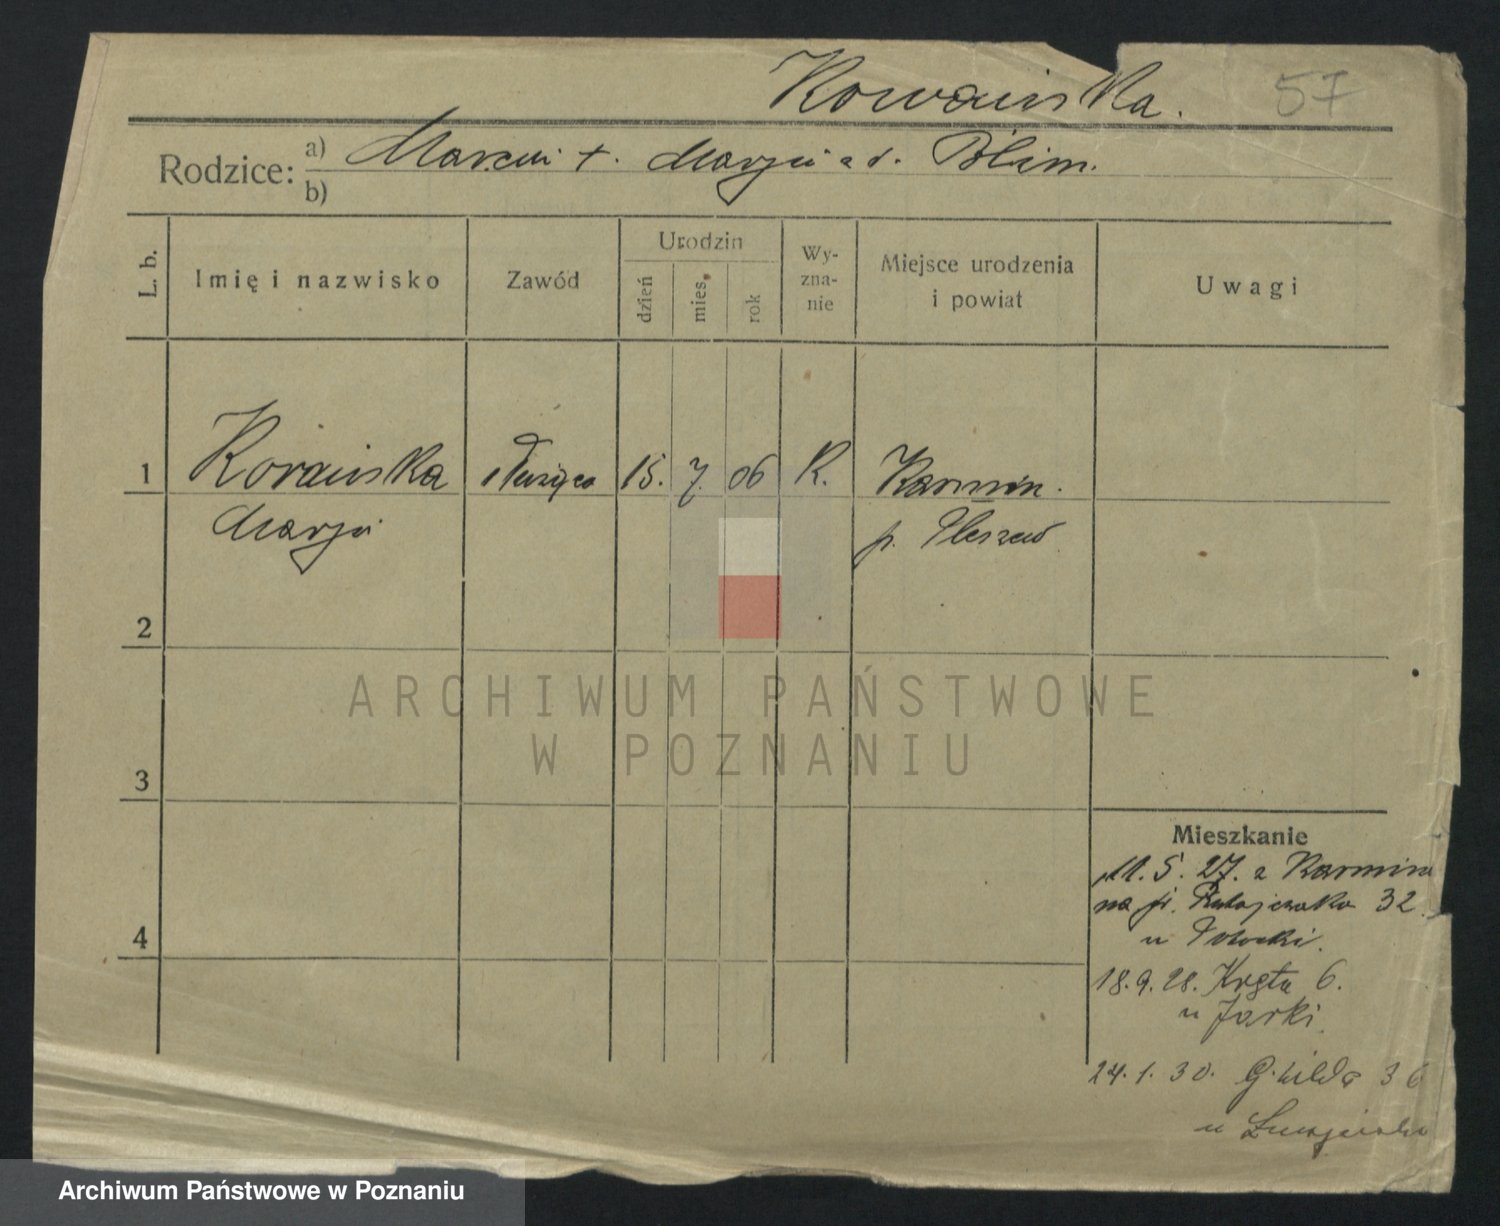 57
Rodzice: a) Marcin +. Marja z d. Blim.
b)
L. b.
Imię i nazwisko
Zawód
Urodzin
dzień
mies.
rok
Wy-
zna-
nie
Miejsce urodzenia
i powiat
Uwagi
1
służąca
15. 7. 06
R.
Karmin.
Marja
p. Pleszew
2
ARCHIWUM PAŃSTWOWE
W POZNANIU
3
Mieszkanie
11. 5. 27. z Karmina
na 32
4
u
18. 9. 28. Kręta 6.
u Jarki.
24. 1. 30. G. Wilda 36
u
Archiwum Państwowe w Poznaniu